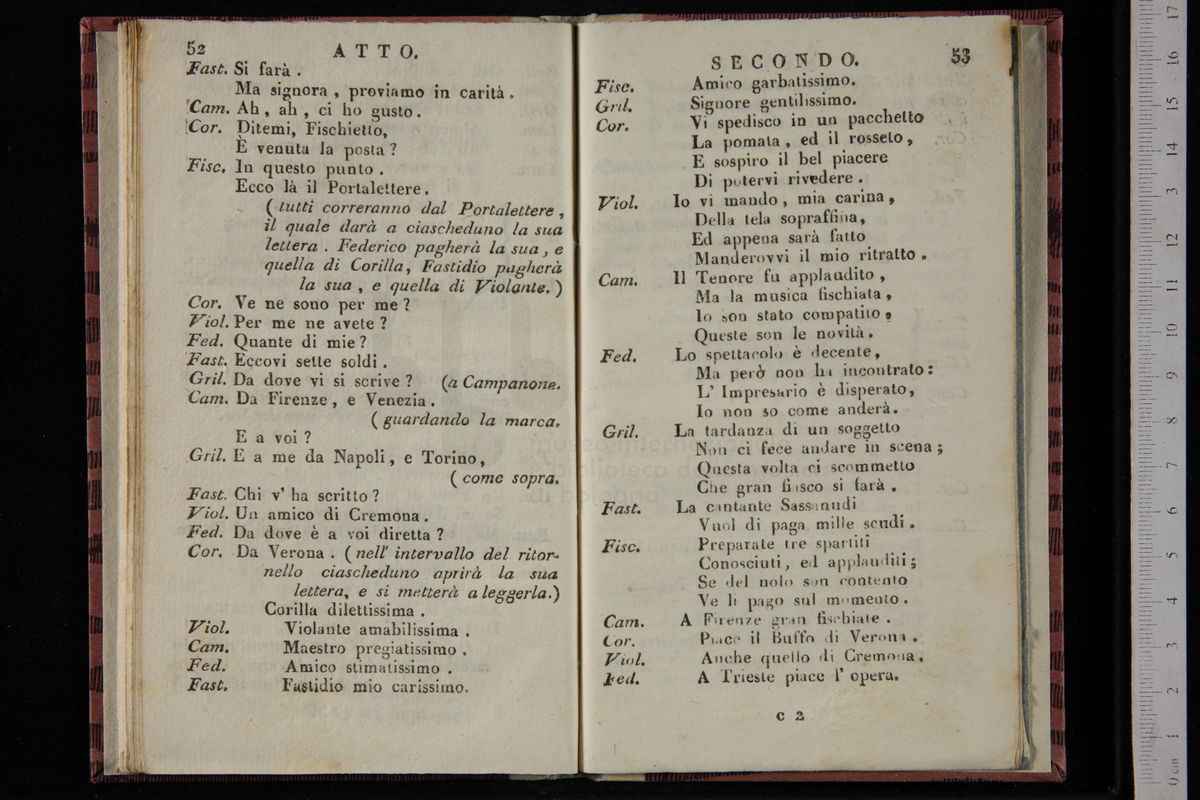 52
ATTO.
Fast. Si farà .
Ma signora , proviamo in carità .
Cam. Ah , ah , ci ho gusto .
Cor. Ditemi, Fischietto,
È venuta la posta ?
Fisc. In questo punto .
Ecco là il Portalettere .
( tutti correranno dal Portalettere ,
il quale darà a ciascheduno la sua
lettera . Federico pagherà la sua , e
quella di Corilla, Fastidio pagherà
la sua , e quella di Violante. )
Cor. Ve ne sono per me ?
Viol. Per me ne avete ?
Fed. Quante di mie ?
Fast. Eccovi sette soldi .
Gril. Da dove vi si scrive ? (a Campanone.
Cam. Da Firenze , e Venezia .
( guardando la marca.
E a voi ?
Gril. E a me da Napoli, e Torino,
( come sopra.
Fast. Chi v' ha scritto ?
Viol. Un amico di Cremona .
Fed. Da dove è a voi diretta ?
Cor. Da Verona . ( nell' intervallo del ritor-
nello ciascheduno aprirà la sua
lettera, e si metterà a leggerla.)
Corilla dilettissima .
Viol. Violante amabilissima .
Cam. Maestro pregiatissimo .
Fed. Amico stimatissimo .
Fast. Fastidio mio carissimo.
SECONDO.
53
Fisc. Amico garbatissimo.
Gril. Signore gentilissimo.
Cor. Vi spedisco in un pacchetto
La pomata , ed il rosseto ,
E sospiro il bel piacere
Di potervi rivedere .
Viol. Io vi mando , mia carina ,
Della tela sopraffina,
Ed appena sarà fatto
Manderovvi il mio ritratto .
Cam. Il Tenore fu applaudito ,
Ma la musica fischiata ,
Io son stato compatito ,
Queste son le novità .
Fed. Lo spettacolo è decente,
Ma però non ha incontrato :
L' Impresario è disperato,
Io non so come anderà.
Gril. La tardanza di un soggetto
Non ci fece andare in scena ;
Questa volta ci scommetto
Che gran fiasco si farà .
Fast. La cantante Sassanudi
Vuol di paga mille scudi .
Fisc. Preparate tre spartiti
Conosciuti, ed applauditi ;
Se del nolo son contento
Ve li pago sul momento .
Cam. A Firenze gran fischiate .
Cor. Piace il Buffo di Verona .
Viol. Anche quello di Cremona .
Fed. A Trieste piace l' opera.
C 2